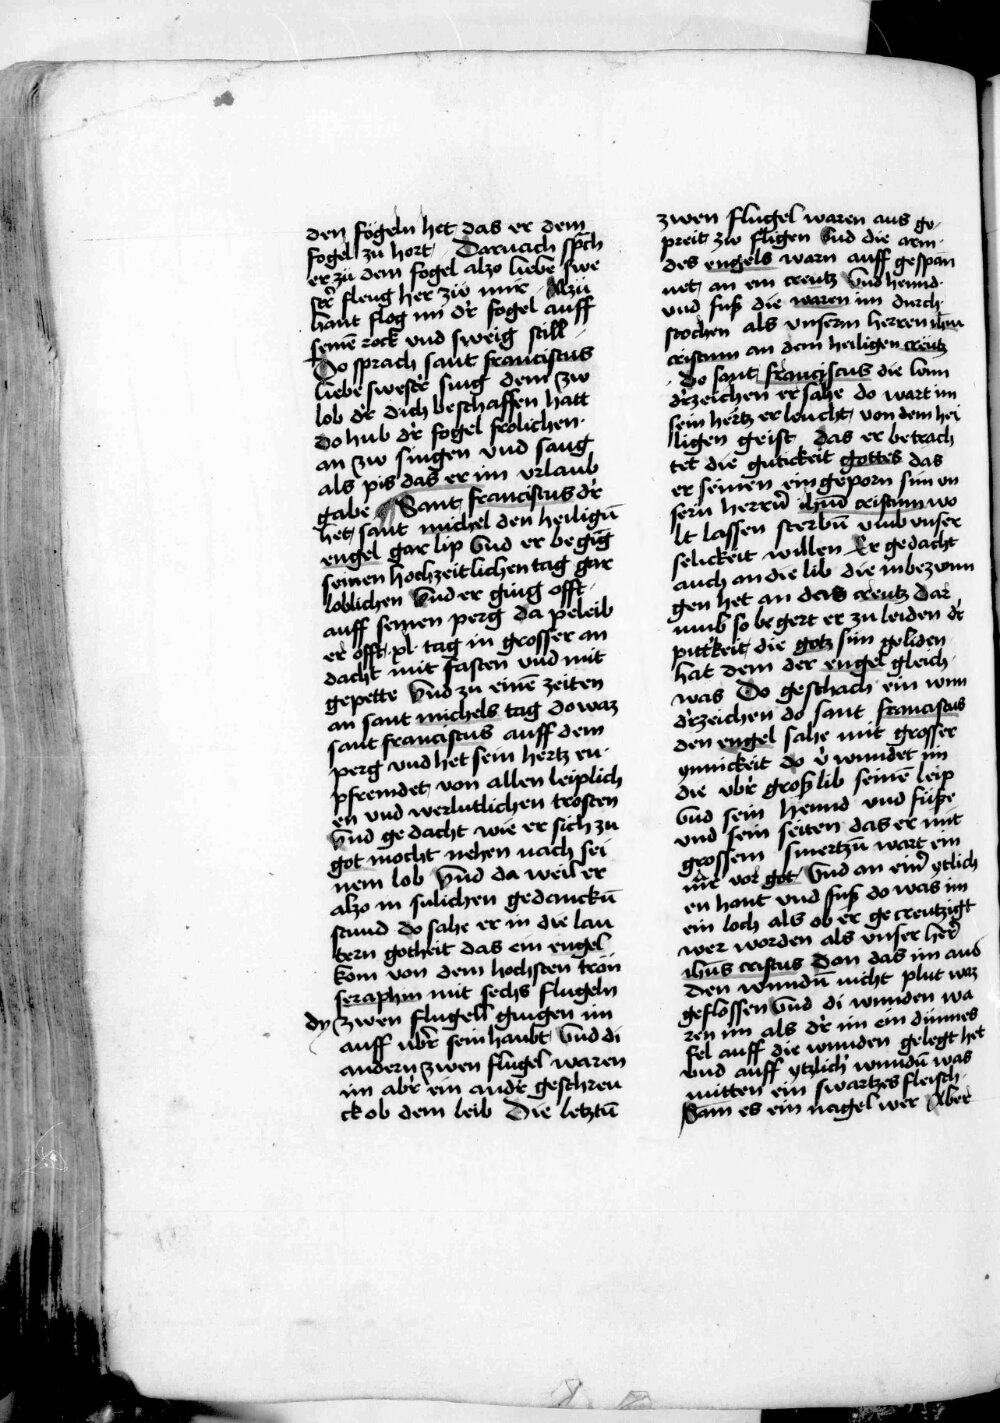 den fogeln het das er dem
fogel zu hort Darnach sprch
er zu dem fogel alzo liebe swe
ster fleug her zw mir Alzu
hant flog im dr fogel auff
seinē rock vnd sweig still
Do sprach sant franciscus
liebe swestr sing dem zw
lob dr dich beschaffen hatt
do hub dr fogel frolichen
an zw singen vnd sang
als pis das er im vrlaub
gabe Sant franciscus dr
het sant michel den heiligū
engel gar lip Vnd er begīg
seinen hochzeitlichen tag gar
loblichen Vnd er ging offt
auff seinen perg da peleib
er offt pl tag in grosser an
dacht mit fasten vnd mit
gepette Vnd zu einē zeiten
an sant michels tag do waz
sant franciscus auff dem
perg vnd het sein hertz en
pfremdet von allen leiplich
en vnd werlutlichen trosten
Vnd gedacht wie er sich zu
got mocht nehen nach sei
nem lob Vnd da weil er
alzo in sulichen gedanckū
stund do sahe er in die lau
tern gotheit das ein engel
kom von dem hochsten tron
seraphin mit sechs flugeln
dy zwen flugell gingen im
auff vbr sein haubt Vnd di
andern zwen flugel waren
im abr ein andr geschren
ck ob dem leib Die letztū
zwen flugel waren aus ge
preit zw fligen Vnd die arm
des engels warn auff gespan
net an ein creutz Vnd hennd
vnd fuß die waren im durch
stochen als vnserm herren ihm
cristum an dem heiligen creutz
Do sant franciscus die wun
drzeichen er sahe do wart im
sein hertz erleucht von dem hei
ligen geist das er betrach
tet die gutickeit gottes das
er seinen eingeporn sun vn
sern herrn ihm cristum wo
lt lassen sterbū vmb vnser
selickeit willen Er gedacht
auch an die lib die in bezwun
gen het an das creutz Dar
vmb so begert er zu leiden dr
pittrkeit die gotz sun geliden
hat dem der engel gleich
was Do geschach ein wun
drzeichen do sant franciscus
den engel sahe mit grosser
ynnickeit do vr wundet im
die vbr groß lib seinē leip
Vnd sein hennd vnd füße
vnd sein seiten das er mit
grossem smertzū wart ein
vor got Vnd an einr ytlich
en hant vnd fuß do was im
ein loch als ob er gecreutzigt
wer worden als vnser herr
ihūs cristus Dan das im aus
den wundū nicht plut waz
geflossen Vnd di wunden wa
ren im als dr im ein dünnes
fel auff die wunden gelegt het
vnd auff ytzlichr wundū was
mitten ein swartzes fleisch
Sam es ein nagel wer Aber